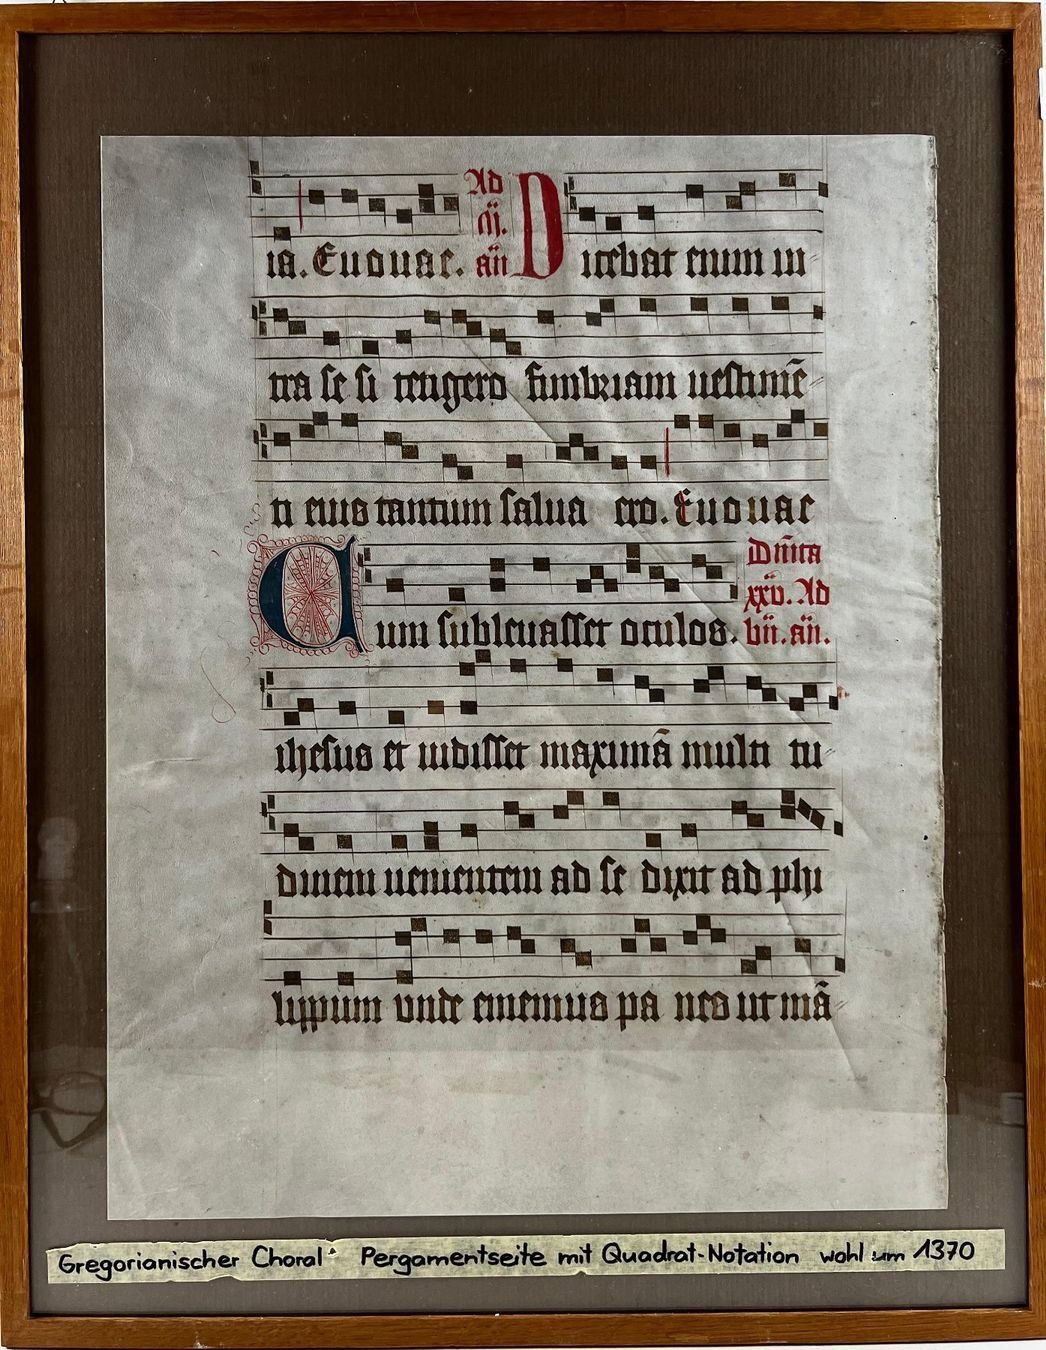 ia. Euouae. Ad
m̄. an̄ Dicebat enim in
tra se si tetigero fimbriam uestimē
ti eius tantum salua ero. Euouae
Cum subleuasset oculos. Dn̄ica
xxv. Ad
bn̄. an̄.
ihesus et uidisset maximā multi tu
dinem uenientem ad se dixit ad phi
lippum unde ememus pa nes ut mā
Gregorianischer Choral Pergamentseite mit Quadrat-Notation wohl um 1370